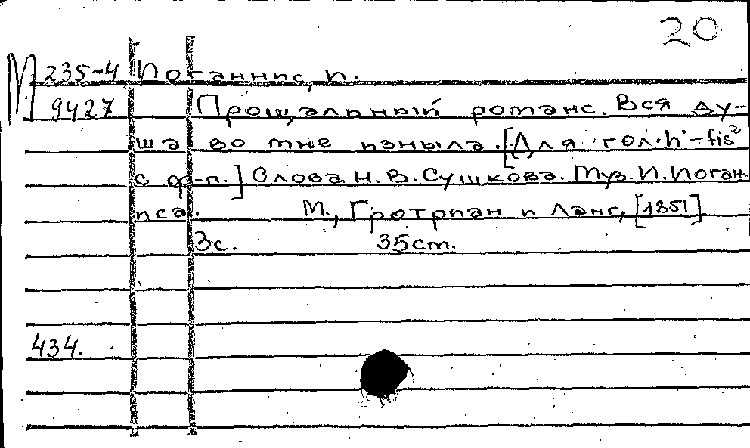 20
М 235-4 Иоганнис, И.
9427 Прощальный романс. Вся ду-
ша во мне изныла. [Для гол. h¹-fis²
с ф-п.] Слова Н. В. Сушкова. Муз. И. Иоган-
ниса. М., Гротриан и Ланг, [1851]
3с. 35см.
434.